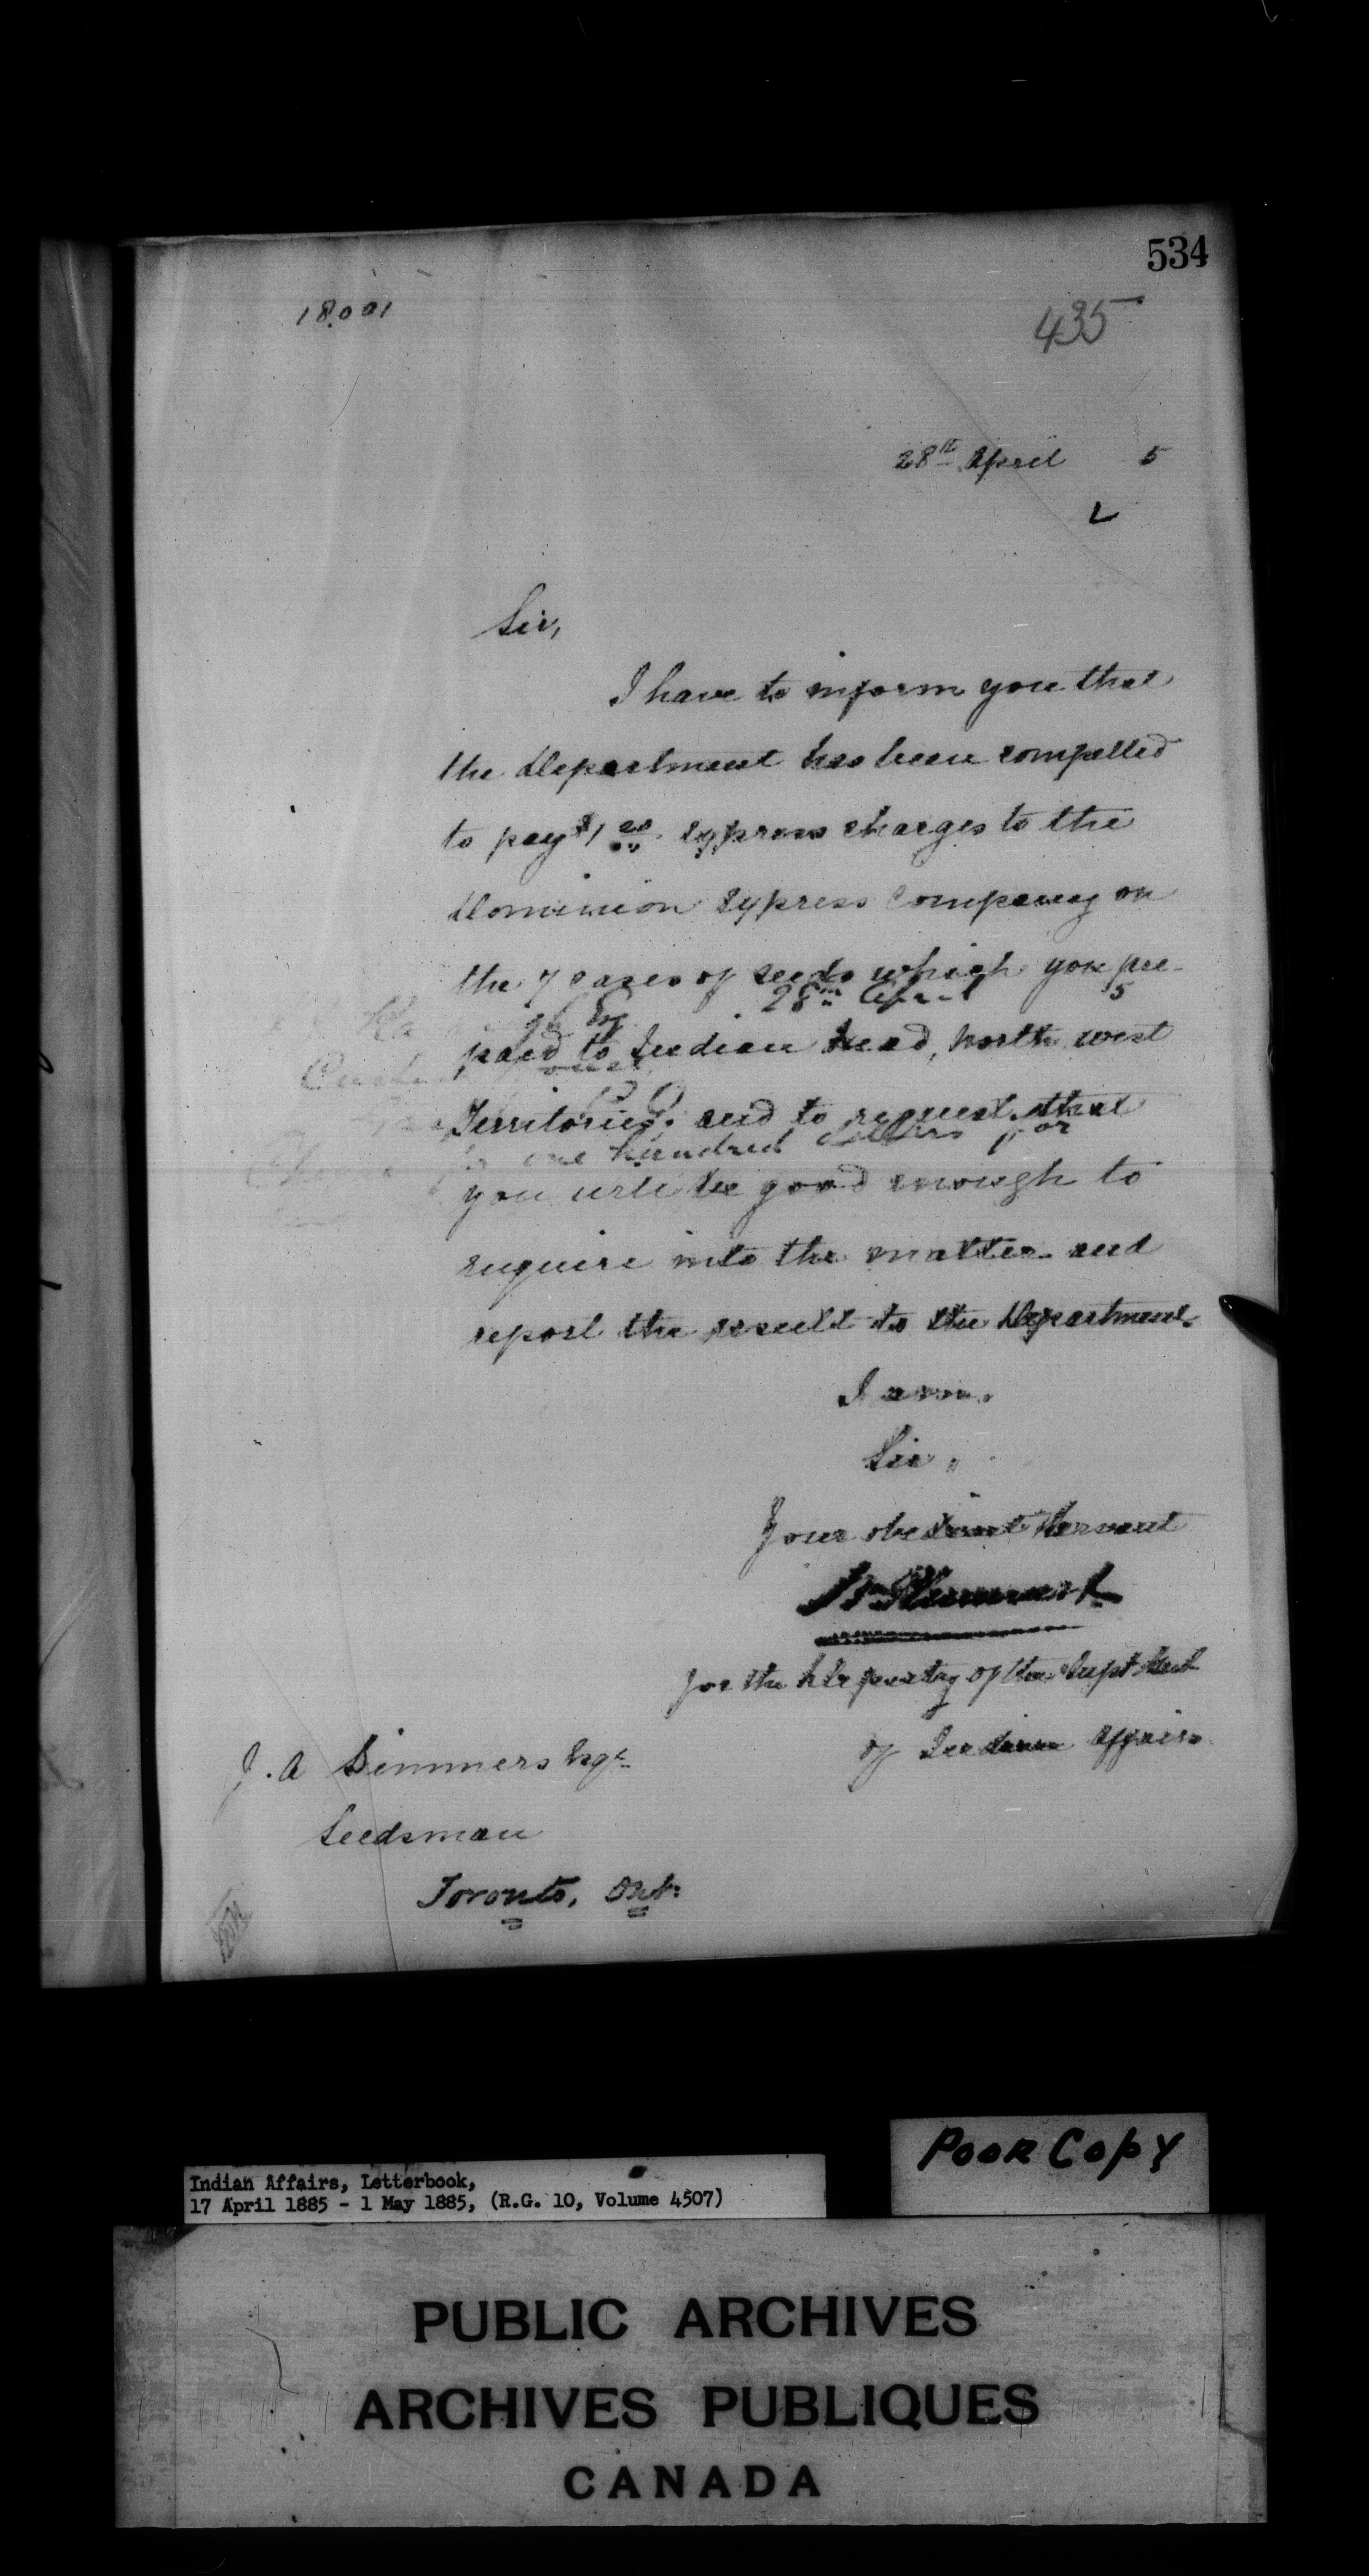 534
18.001
435
28th April 5
L
Sir,
I have to inform you that
the Department has been compelled
to pay $1 20/00 express charges to the
Dominion Express Company on
the 7 cases of seeds which you pre-
28th April 5
Esq
paid to Indian Head, North west
Territories, and to request that
one hundred dollars for
you will be good enough to
enquire into the matter and
report the result to the Department.
I am,
Sir,
Your obedient Servant
for the Deputy of the Supt Genl
of Indian Affairs
J. A Simmers Esqr
Seedsman
Toronto, Ont:
Poor Copy
Indian Affairs, Letterbook,
17 April 1885 - 1 May 1885, (R.G. 10, Volume 4507)
PUBLIC ARCHIVES
ARCHIVES PUBLIQUES
CANADA